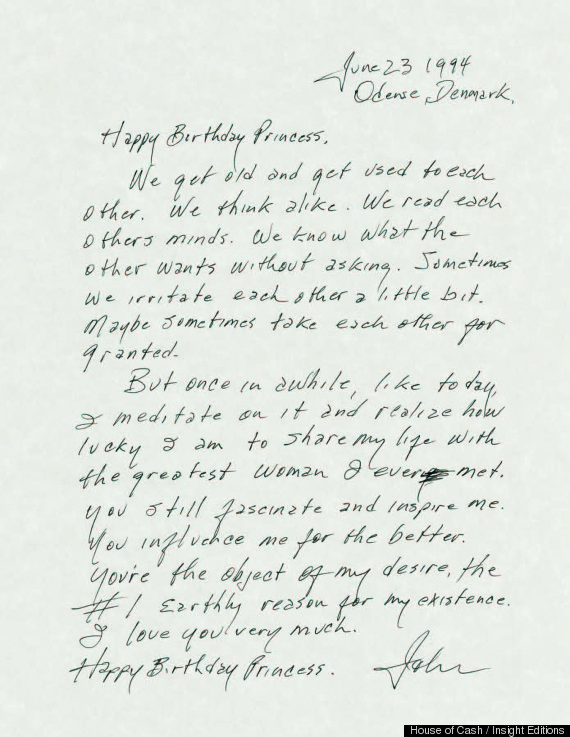 June 23 1994
Odense, Denmark.
Happy Birthday Princess.
We get old and get used to each
other. We think alike. We read each
others minds. We know what the
other wants without asking. Sometimes
we irritate each other a little bit.
Maybe sometimes take each other for
granted.
But once in awhile, like today,
I meditate on it and realize how
lucky I am to share my life with
the greatest woman I ever met.
You still fascinate and inspire me.
You influence me for the better.
You're the object of my desire, the
#1 Earthly reason for my existence.
I love you very much.
Happy Birthday Princess.
John
House of Cash / Insight Editions